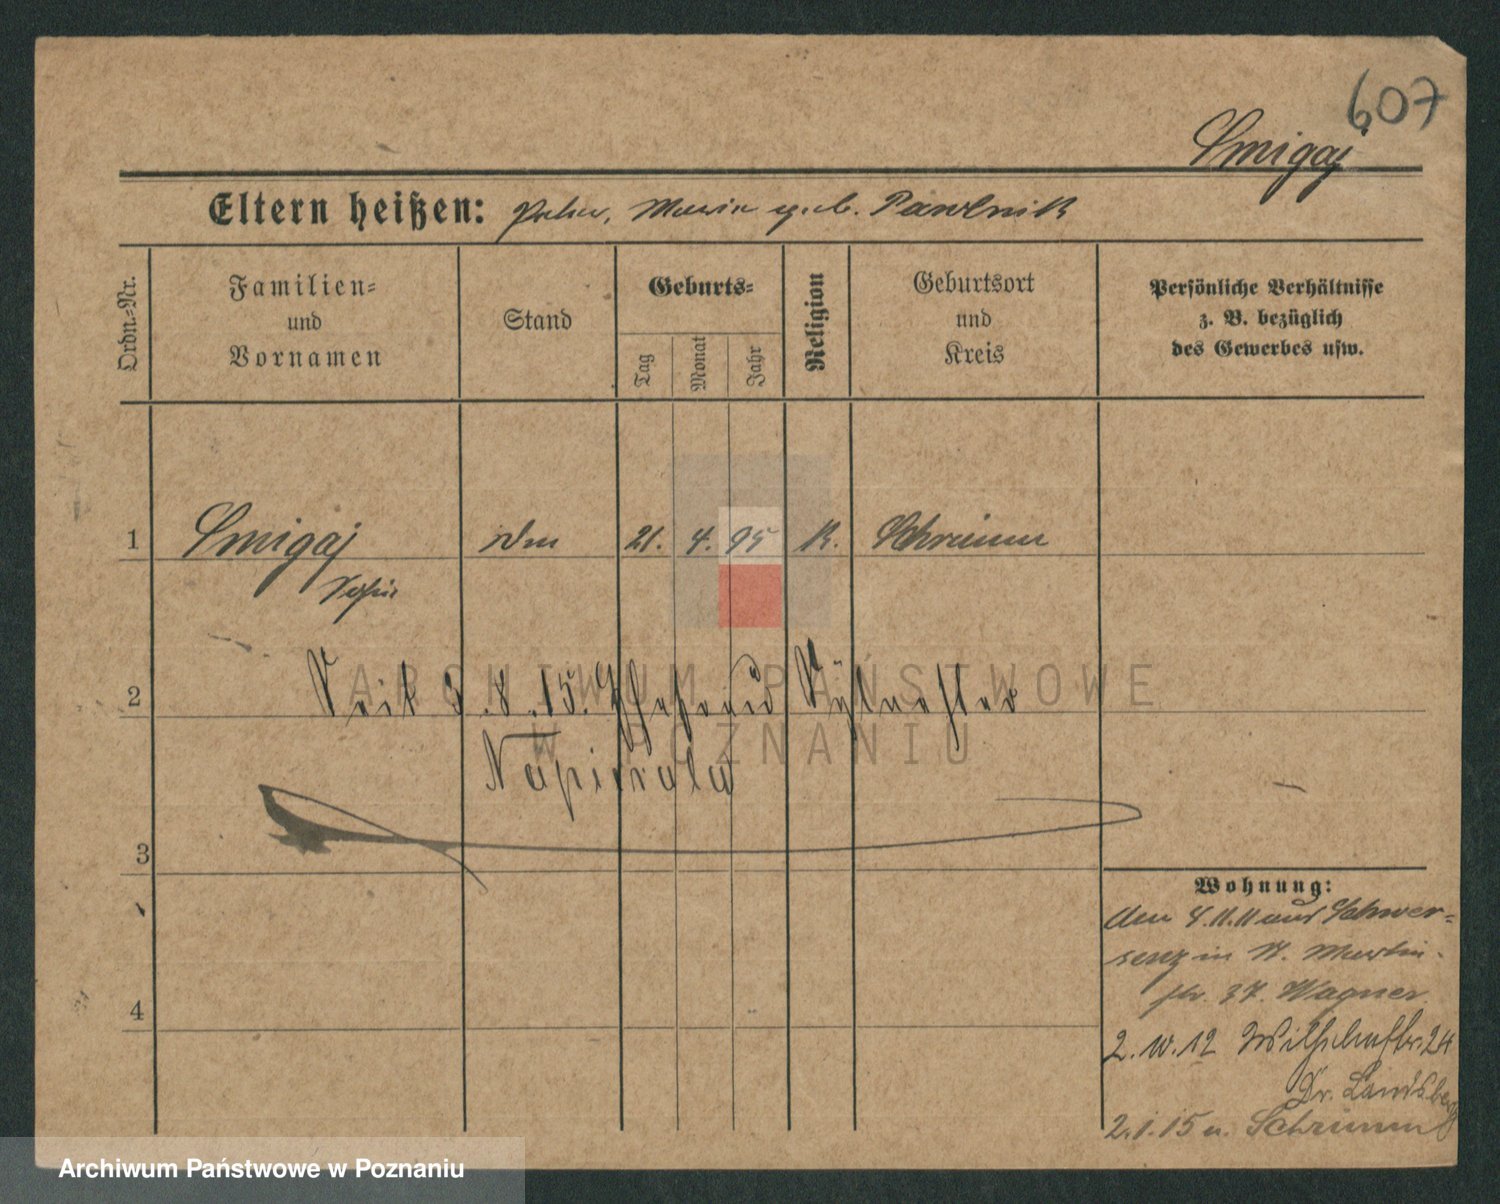 607
Smigaj
Eltern heißen: Peter, Marie geb. Pawlnik
Ordn.-Nr.
Familien-
und
Vornamen
Stand
Geburts-
Tag
Monat
Jahr
Religion
Geburtsort
und
Kreis
Persönliche Verhältnisse
z. B. bezüglich
des Gewerbes usw.
1 Smigaj 21. 4. 95 K. Schrimm
Sofie
2 Seit 3.8.15. Ehefrau
Napierala
3
4
Wohnung:
den 4.11.11 aus Schwer-
senz in St. Martin-
str. 37. Wagner
2.10.12 24
Dr. Landsberg
2.1.15 n. Schrimm
ARCHIWUM PAŃSTWOWE
W POZNANIU
Archiwum Państwowe w Poznaniu